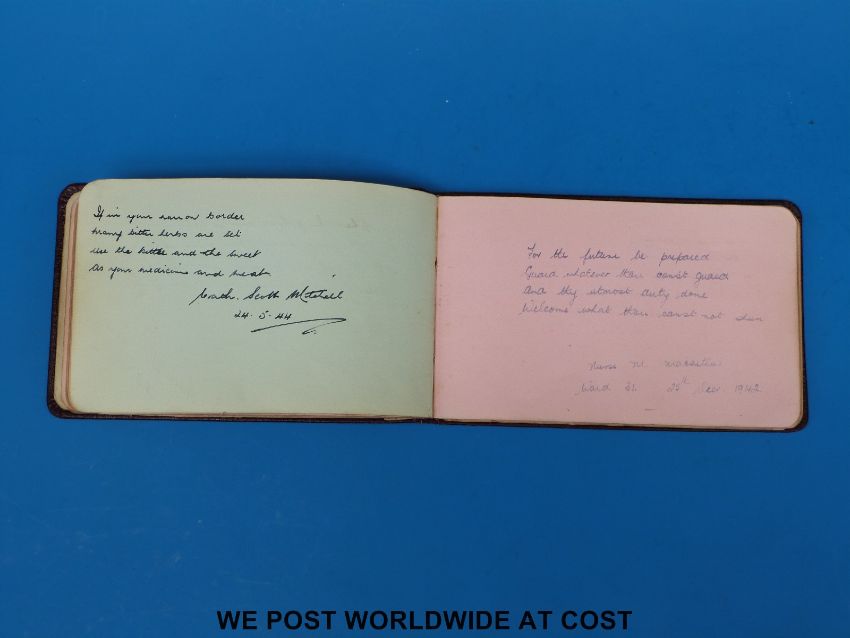 If in your narrow border
many bitter herbs are set
use the bitter and the sweet
As your medicine and meat
Scott Mitchell
24-5-44
For the future be prepared
Guard whatever thou canst guard
And thy utmost duty done
Welcome what thou canst not shun
Nurse M.
Ward 31. 25th 1942
WE POST WORLDWIDE AT COST